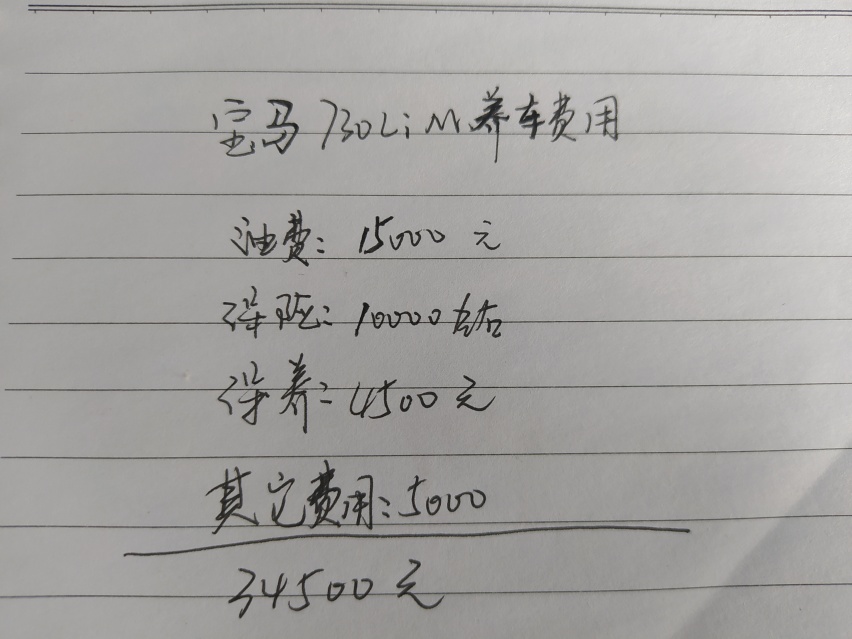 宝马730Li M养车费用
油费：15000元
保险：10000左右
保养：4500元
其它费用：5000
34500元